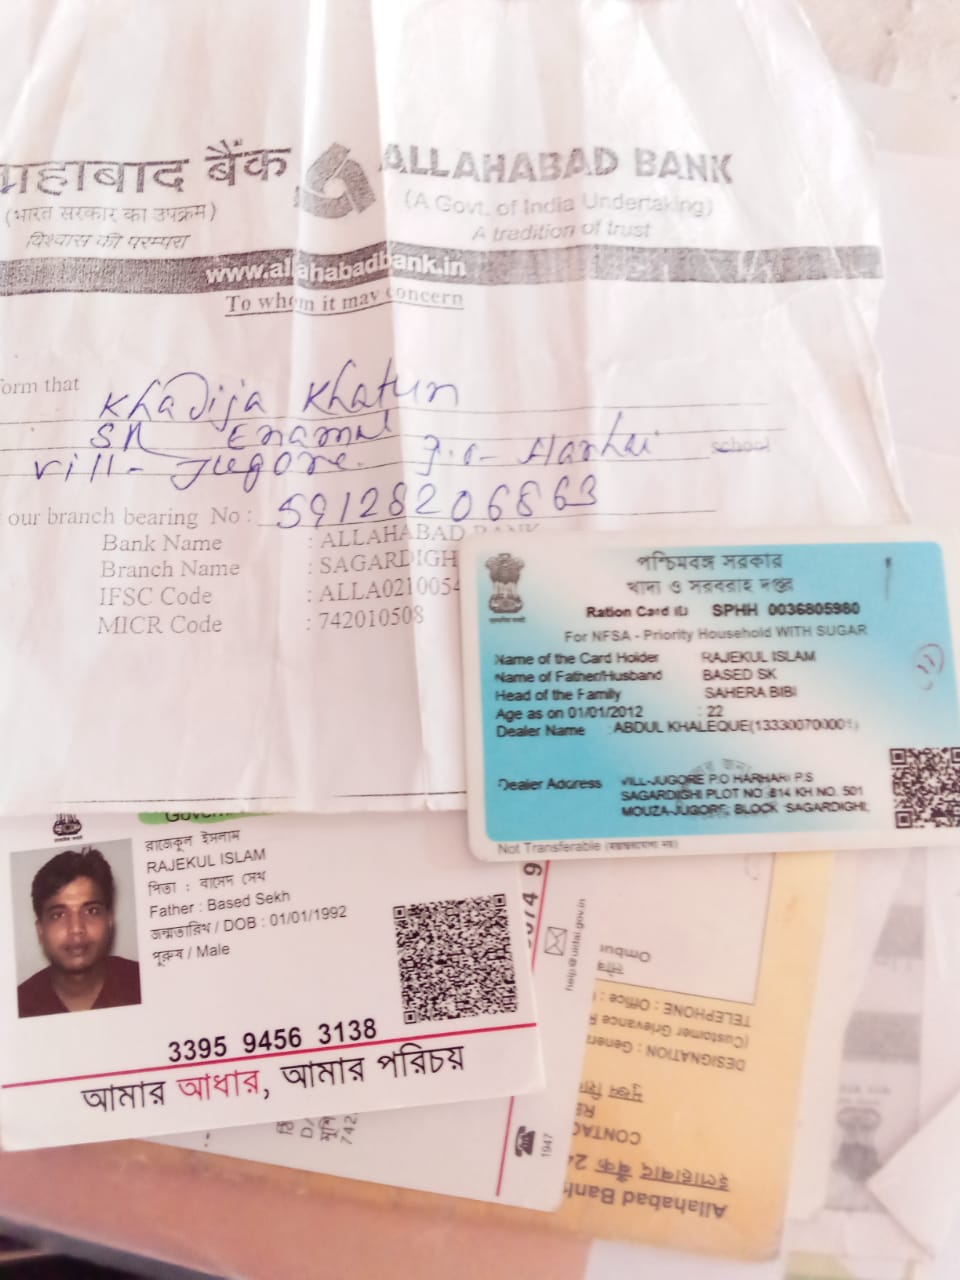 हाबाद बैंक ALLAHABAD BANK
(भारत सरकार का उपक्रम) (A Govt. of India Undertaking)
विश्वास की परम्परा A tradition of trust
www.allahabadbank.in
To whom it may concern
form that Khadija Khatun
SK Enamul
vill- Jugore. P.O- Harhari school
our branch bearing No : 59128206863
Bank Name : ALLAHABAD BANK
Branch Name : SAGARDIGH
IFSC Code : ALLA0210054
MICR Code : 742010508
পশ্চিমবঙ্গ সরকার
খাদ্য ও সরবরাহ দপ্তর
Ration Card ID SPHH 0036805980
For NFSA - Priority Household WITH SUGAR
Name of the Card Holder RAJEKUL ISLAM
Name of Father/Husband BASED SK
Head of the Family SAHERA BIBI
Age as on 01/01/2012 : 22
Dealer Name : ABDUL KHALEQUE(133300700001)
Dealer Address VILL-JUGORE P.O HARHARI P.S
SAGARDIGHI PLOT NO. 814 KH NO. 501
MOUZA-JUGORE, BLOCK SAGARDIGHI,
Not Transferable
11
রাজেকুল ইসলাম
RAJEKUL ISLAM
পিতা : বাসেদ সেখ
Father : Based Sekh
জন্মতারিখ / DOB : 01/01/1992
পুরুষ / Male
3395 9456 3138
আমার আধার, আমার পরিচয়
help@uidai.gov.in
1947
Ombu
TELEPHONE : Office :
(Customer Grievance R
DESIGNATION : Gener
CONTAC
इलाहाबाद बैंक 24
Allahabad Bank